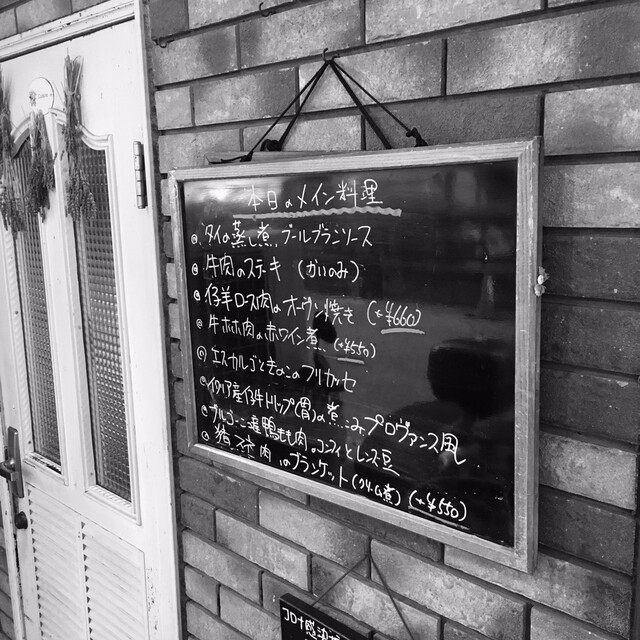 本日のメイン料理
タイの蒸し煮 ブールブランソース
牛肉のステーキ (かいのみ)
仔羊ロース肉のオーヴン焼き (+¥660)
牛ホホ肉の赤ワイン煮 (+¥550)
エスカルゴときのこのフリカッセ
イタリア産仔牛トリップ(胃)の煮こみ プロヴァンス風
ブルゴーニュ産鴨もも肉のコンフィとレンズ豆
肉のブランケット (クリーム煮) (+¥550)
コロナ感染